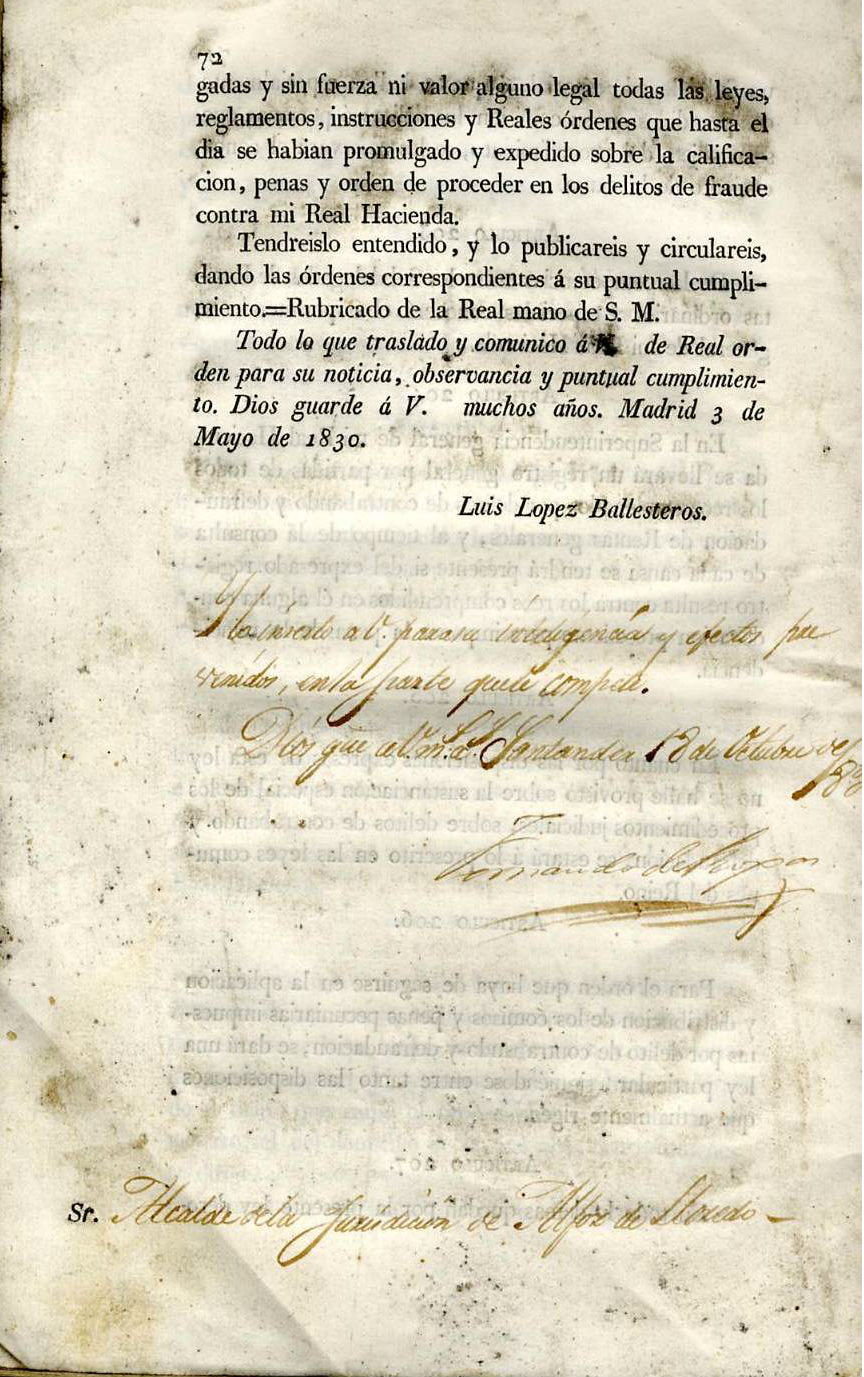 72
gadas y sin fuerza ni valor alguno legal todas las leyes,
reglamentos, instrucciones y Reales órdenes que hasta el
dia se habian promulgado y expedido sobre la califica-
cion, penas y orden de proceder en los delitos de fraude
contra mi Real Hacienda.
Tendreislo entendido, y lo publicareis y circulareis,
dando las órdenes correspondientes á su puntual cumpli-
miento.=Rubricado de la Real mano de S. M.
Todo lo que traslado y comunico á de Real or-
den para su noticia, observancia y puntual cumplimien-
to. Dios guarde á V. muchos años. Madrid 3 de
Mayo de 1830.
Luis Lopez Ballesteros.
Y lo inserto a V. para su inteligencia y efectos pre
venidos, en la parte que le compete.
Dios gue a V. m. a. Santander 18 de Octubre de
183
Fernando de
Sr. Alcalde de la Jurisdicion de Alfoz de Lloredo